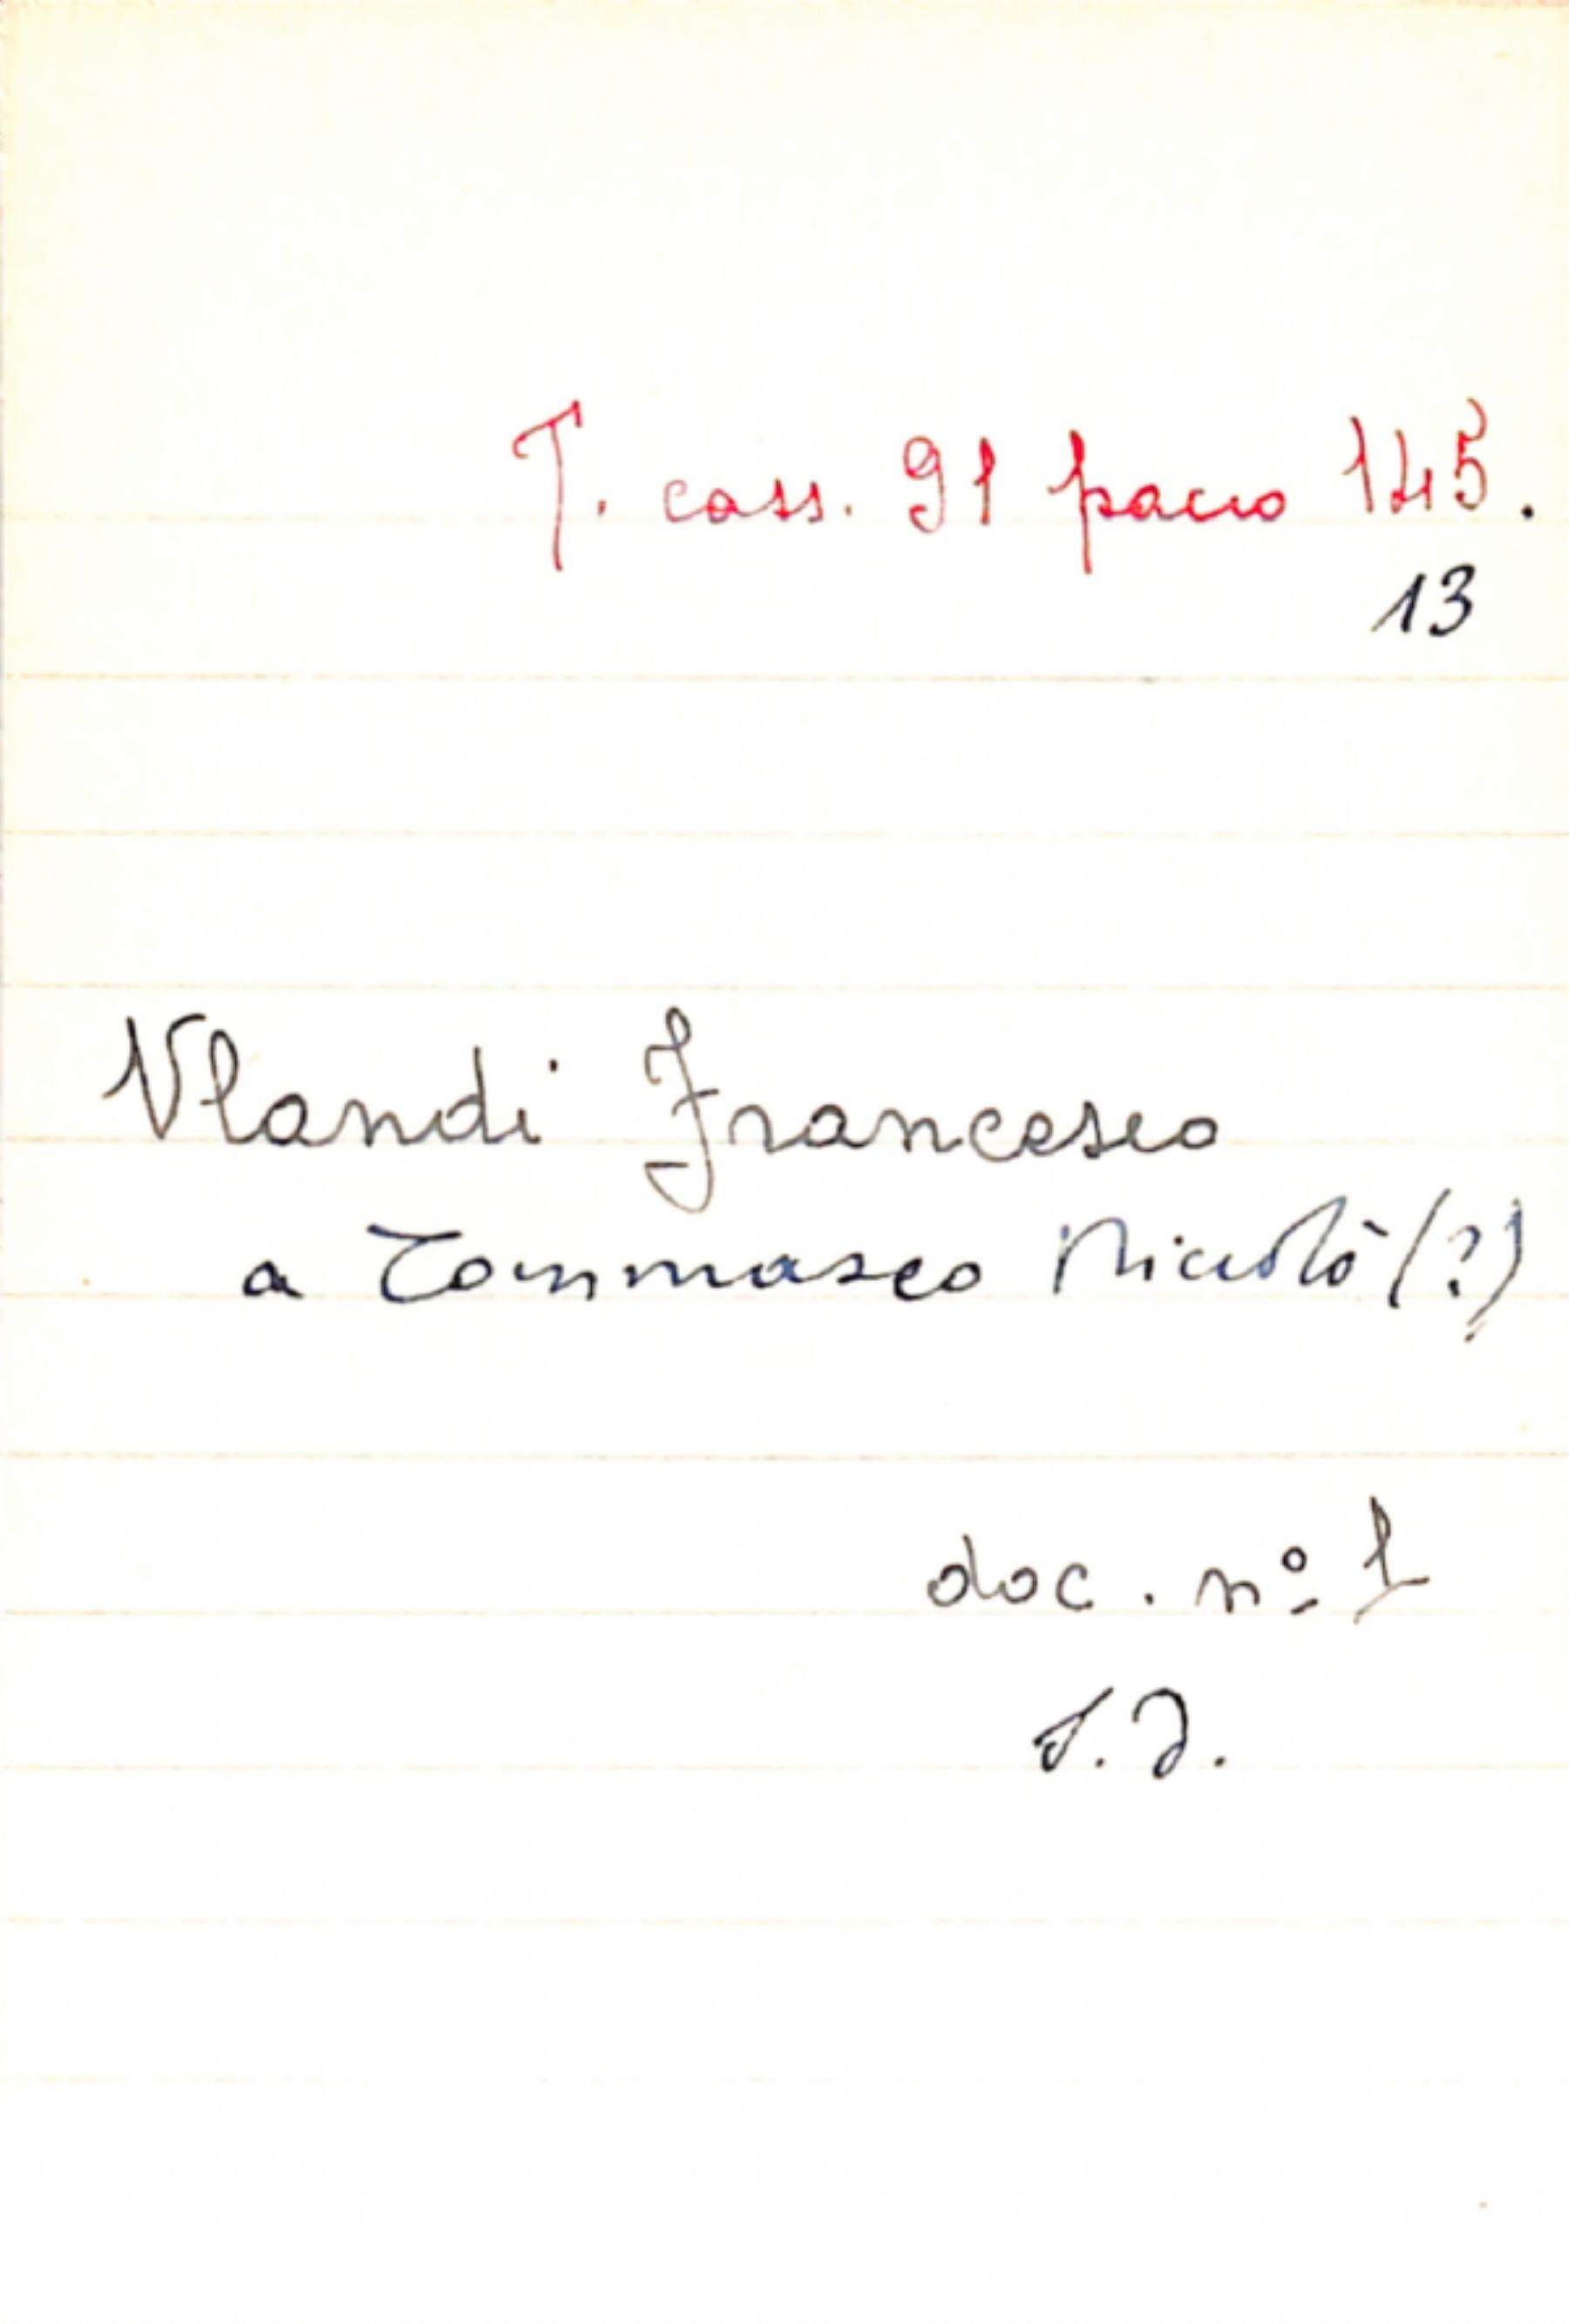 T. cass. 91 pacco 145.
13
Vlandi Francesco
a Tommaseo Niccolò (?)
doc. nº 1
s.d.